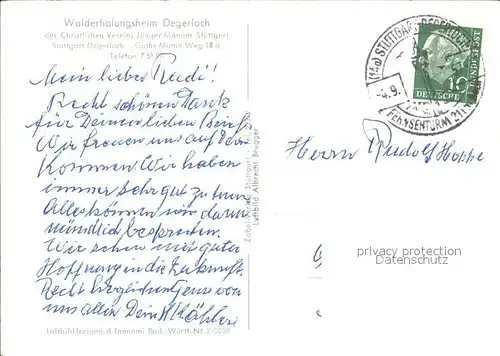 Walderholungsheim Degerloch
des Christlichen Vereins Junger Männer Stuttgart
Stuttgart Degerloch Guths-Muths-Weg 18 a
Telefon
Mein lieber Rudi!
Recht schönen Dank
für Deinen lieben Brief.
Wir freuen uns auf Dein
Kommen. Wir haben
immer sehr gut zu tun.
Alles können wir dann
mündlich besprechen.
Wir sehen mit guter
Hoffnung in die Zukunft.
Recht herzliche Grüsse von
uns allen Dein
Luftbild freigeg. d. Innenmi. Bad. Württ. Nr. 2/2028
Zobel-Verlag Stuttgart
Luftbild Albrecht Brugger
(14a) STUTTGART-DEGERLOCH
-4.9.
FERNSEHTURM 211
10
DEUTSCHE
Herrn Rudolf Hoppe
privacy protection
Datenschutz